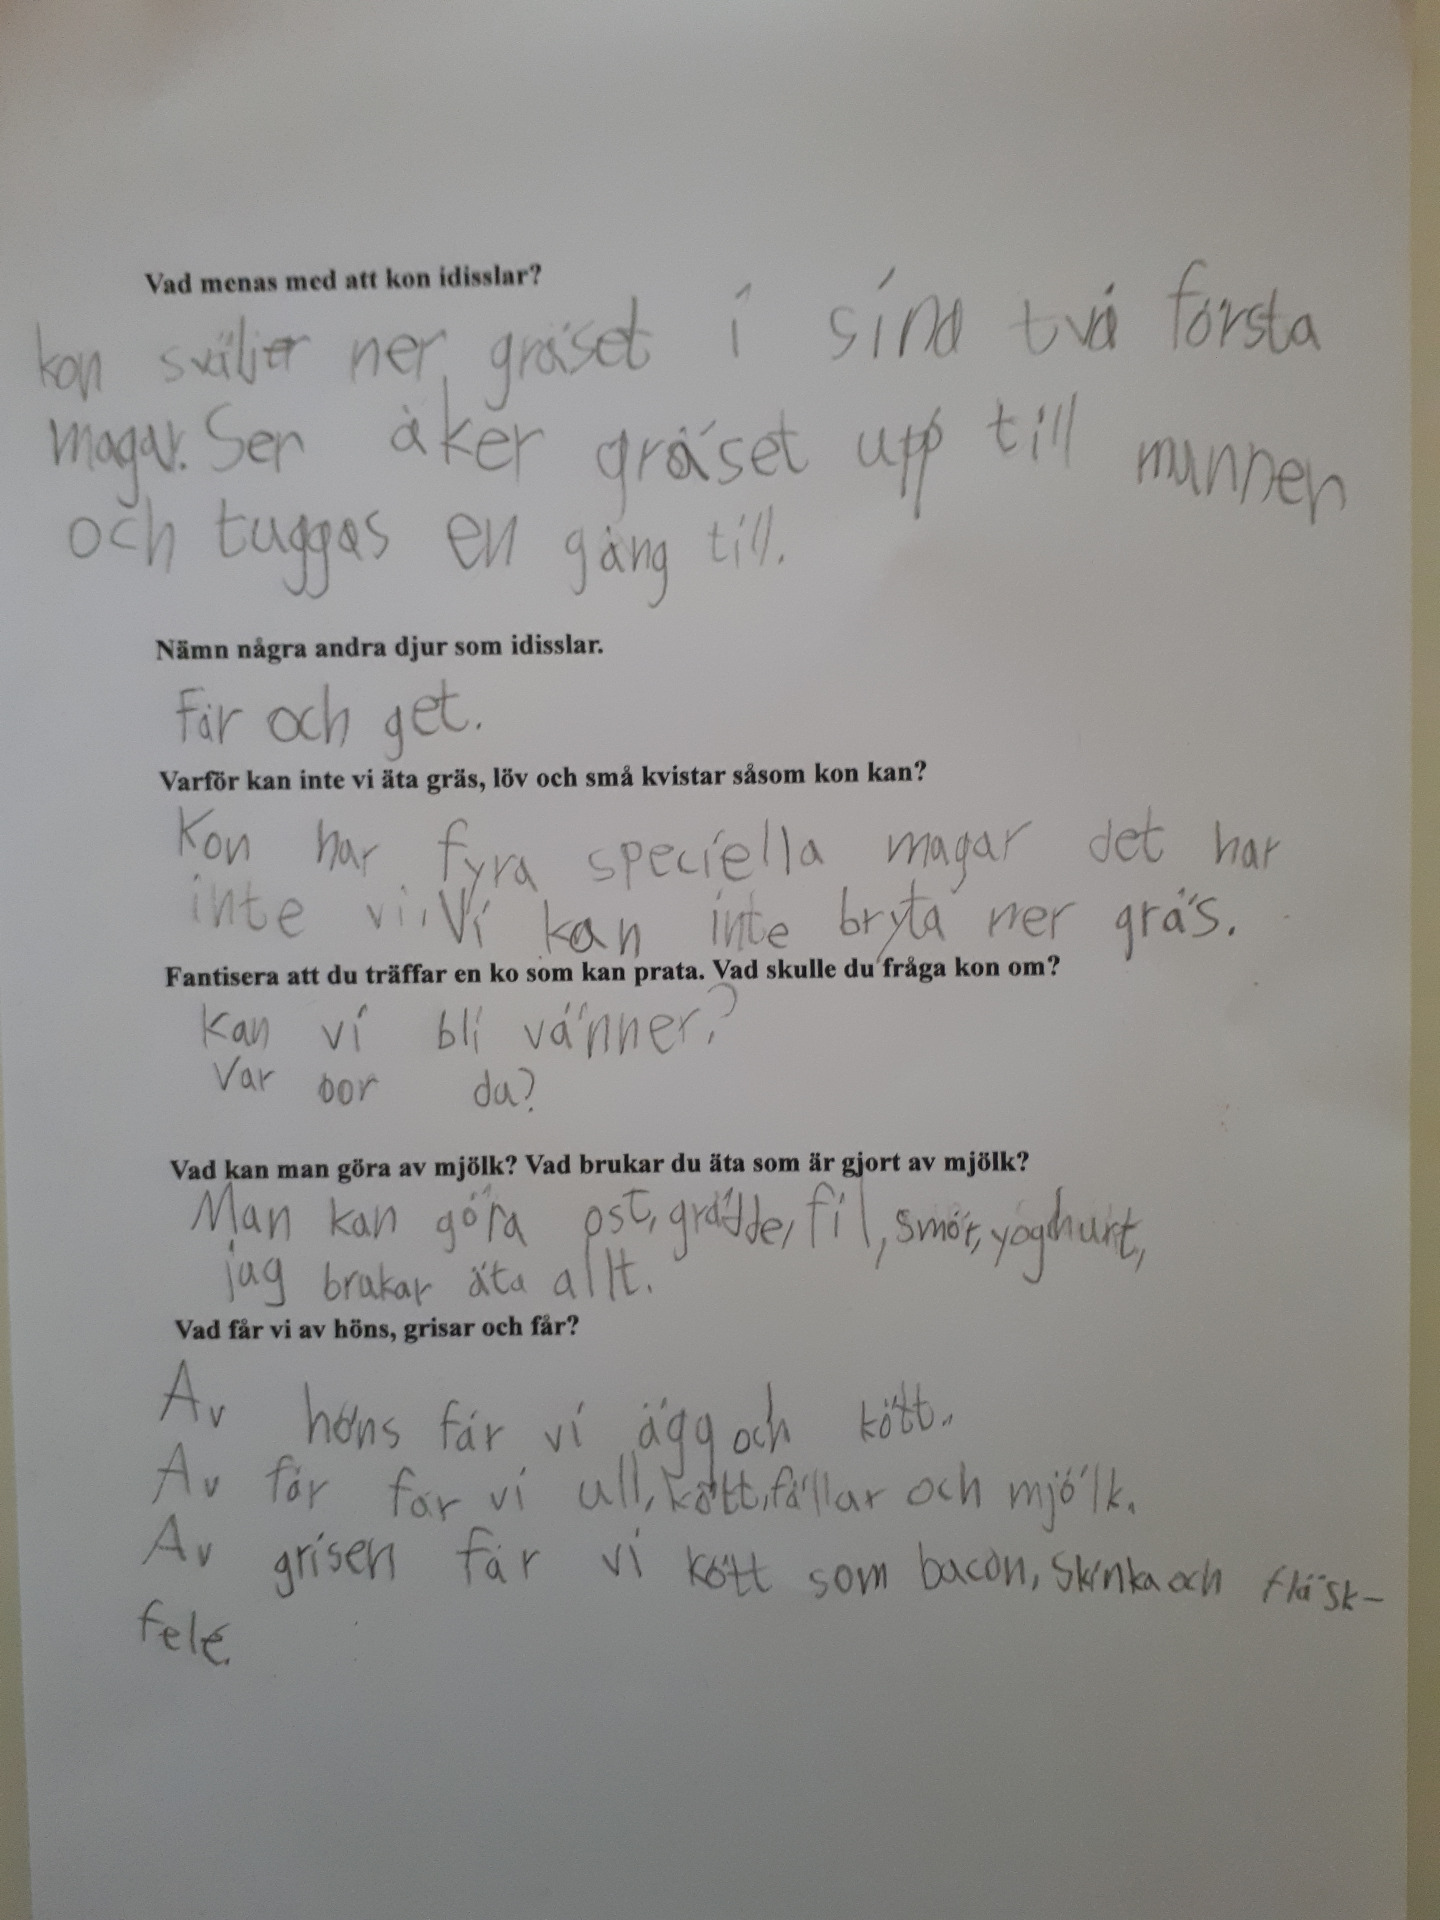 Vad menas med att kon idisslar?
kon sväljer ner gräset i sina två första
magar. Sen åker gräset upp till munnen
och tuggas en gång till.
Nämn några andra djur som idisslar.
Får och get.
Varför kan inte vi äta gräs, löv och små kvistar såsom kon kan?
Kon har fyra speciella magar det har
inte vi. Vi kan inte bryta ner gräs.
Fantisera att du träffar en ko som kan prata. Vad skulle du fråga kon om?
Kan vi bli vänner?
Var bor du?
Vad kan man göra av mjölk? Vad brukar du äta som är gjort av mjölk?
Man kan göra ost, grädde, fil, smör, yoghurt,
jag brukar äta allt.
Vad får vi av höns, grisar och får?
Av höns får vi ägg och kött.
Av får får vi ull, kött, fällar och mjölk.
Av grisen får vi kött som bacon, skinka och fläsk-
felé.